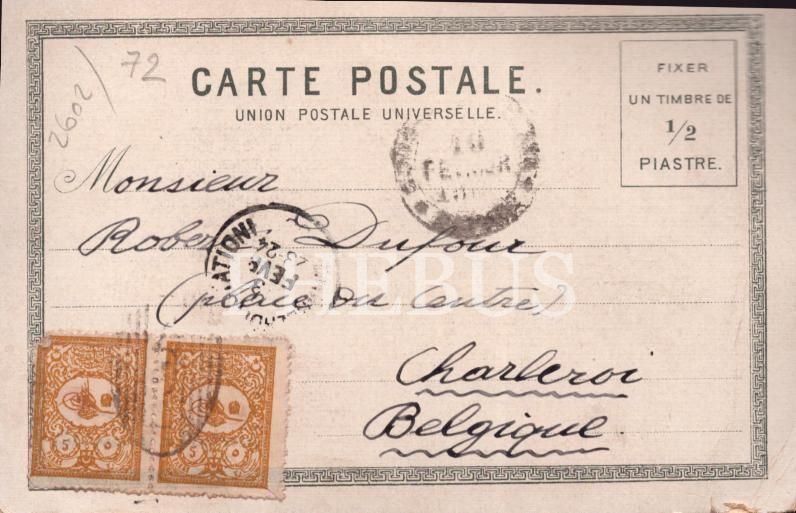 2602
72
CARTE POSTALE.
UNION POSTALE UNIVERSELLE.
FIXER
UN TIMBRE DE
1/2
PIASTRE.
Monsieur
Robert Dufour
(place du Centre)
Charleroi
Belgique.
10
FEVRIER
FEVR
23-24
PHEBUS
5 ٥
5 ٥